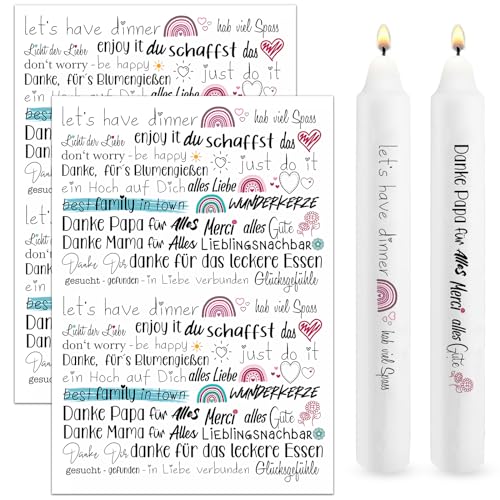 let's have dinner hab viel Spass
Licht der Liebe enjoy it du schaffst das
don't worry - be happy just do it
Danke, für's Blumengießen
let's have dinner hab viel Spass
Licht der Liebe enjoy it du schaffst das
don't worry - be happy just do it
Danke, für's Blumengießen
ein Hoch auf Dich alles Liebe
best family in town WUNDERKERZE
Danke Papa für Alles Merci alles Gute
Danke Mama für Alles Lieblingsnachbar
Danke Dir danke für das leckere Essen
gesucht - gefunden - in Liebe verbunden Glücksgefühle
let's have dinner hab viel Spass
Licht der Liebe enjoy it du schaffst das
don't worry - be happy just do it
Danke, für's Blumengießen
ein Hoch auf Dich alles Liebe
best family in town WUNDERKERZE
Danke Papa für Alles Merci alles Gute
Danke Mama für Alles Lieblingsnachbar
Danke Dir danke für das leckere Essen
gesucht - gefunden - in Liebe verbunden Glücksgefühle
let's have dinner hab viel Spass
Danke Papa für Alles Merci alles Gute